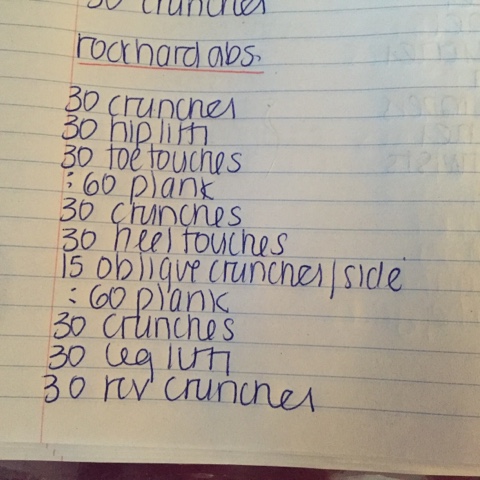 30 crunches
rockhard abs.
30 crunches
30 hip lifts
30 toe touches
:60 plank
30 crunches
30 heel touches
15 oblique crunches/side
:60 plank
30 crunches
30 leg lifts
30 rev crunches